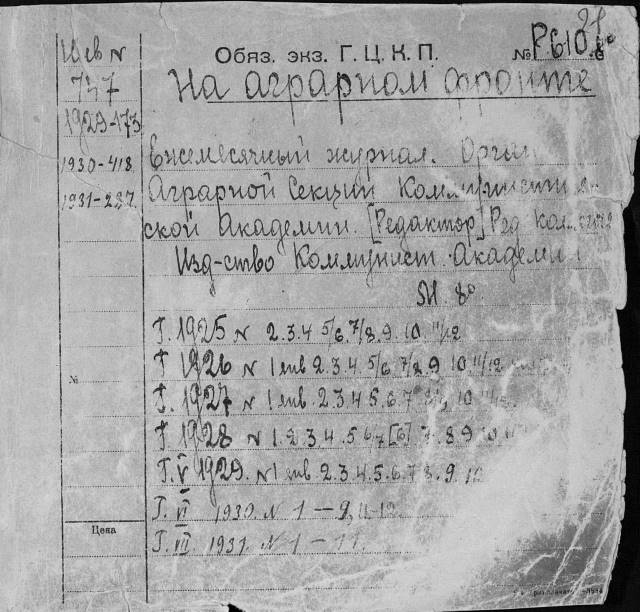 Обяз. экз. Г. Ц. К. П.
№ Р610
Шев N
747
На аграрном фронте
1929-173
1930-418
1931-287
Ежемесячный журнал. Орган
Аграрной Секции Коммунистиче-
ской Академии. [Редактор] Ред.
Изд-ство Коммунист. Академии
8°
Т. 1925 N 2. 3. 4 5/6. 7/8. 9. 10 11/12
Т. 1926 N 1 янв 2. 3. 4. 5/6 7/8 9 10 11/12
Т. 1927 N 1 янв. 2. 3. 4. 5. 6. 7 10
Т. 1928 N 1. 2. 3. 4. 5. 6 7 [6] 8 9 10
Т. V 1929. N 1 янв 2. 3. 4. 5. 6. 7. 8. 9. 10
Т. VI 1930. N 1 — 9, 11-12
Т. VII 1931. N 1 — 11
№
Цена